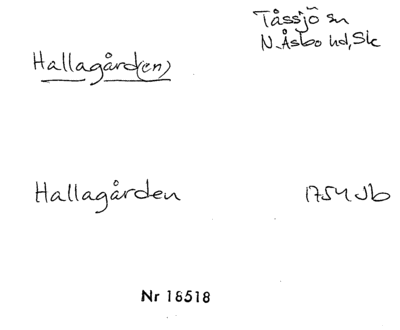 Tåssjö sn
N. Åsbo hd, Sk
Hallagård(en)
Hallagården 1754 Jb
Nr 18518